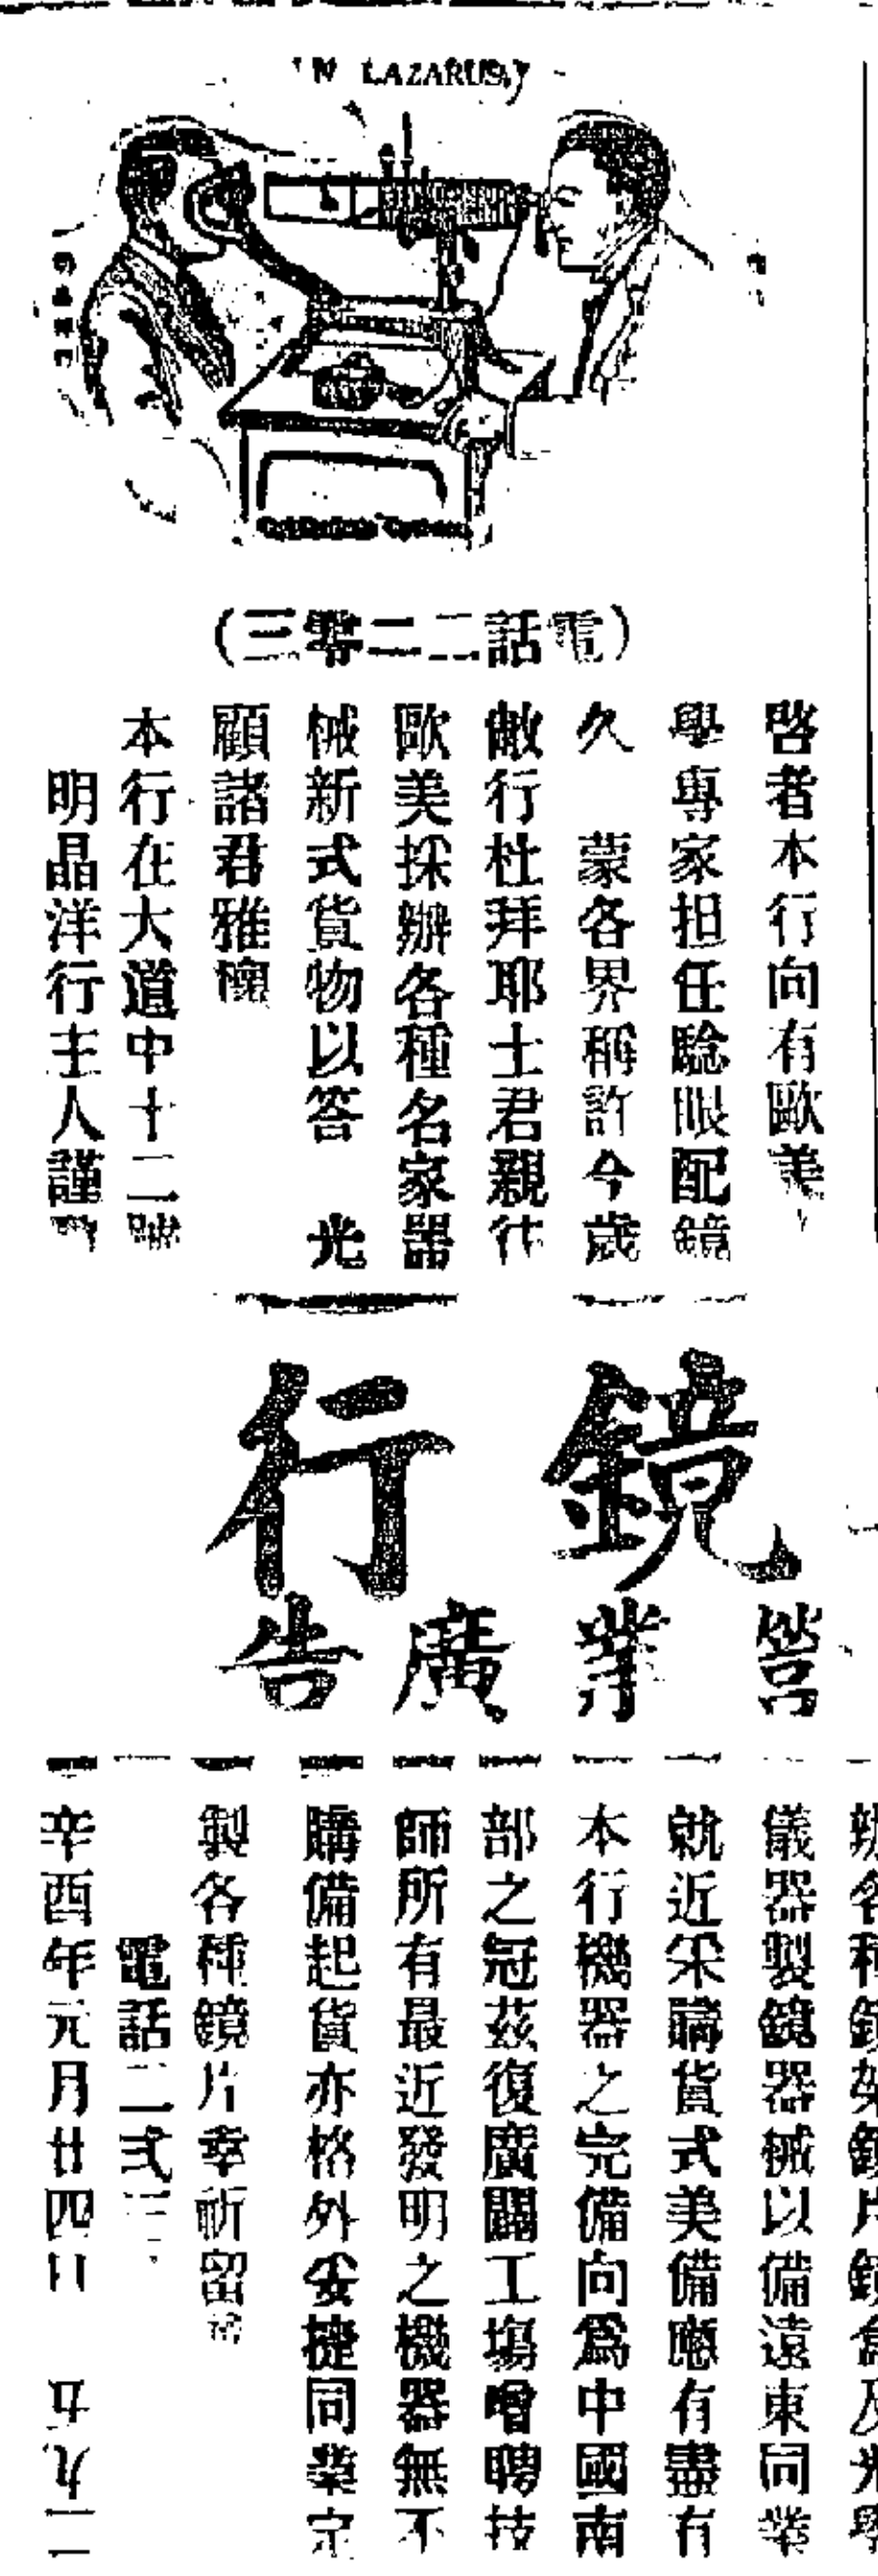 N LAZARUS
(三零二二話電)
啓者本行向有歐美
學專家担任騐眼配鏡
久 蒙各界稱許今歲
敝行杜拜耶士君親往
歐美採辦各種名家器
械新式貨物以答 光
顧諸君雅懷
本行在大道中十二號
明晶洋行主人謹
行鏡
告廣業營
各種鏡架鏡片鏡盒及光學
儀器製鏡器械以備遠東同業
就近采購貨式美備應有盡有
本行機器之完備向爲中國南
部之冠茲復廣闢工塲增聘技
師所有最近發明之機器無不
購備起貨亦格外妥捷同業定
製各種鏡片幸祈留
電話二弍三
辛酉年元月廿四日 五九二